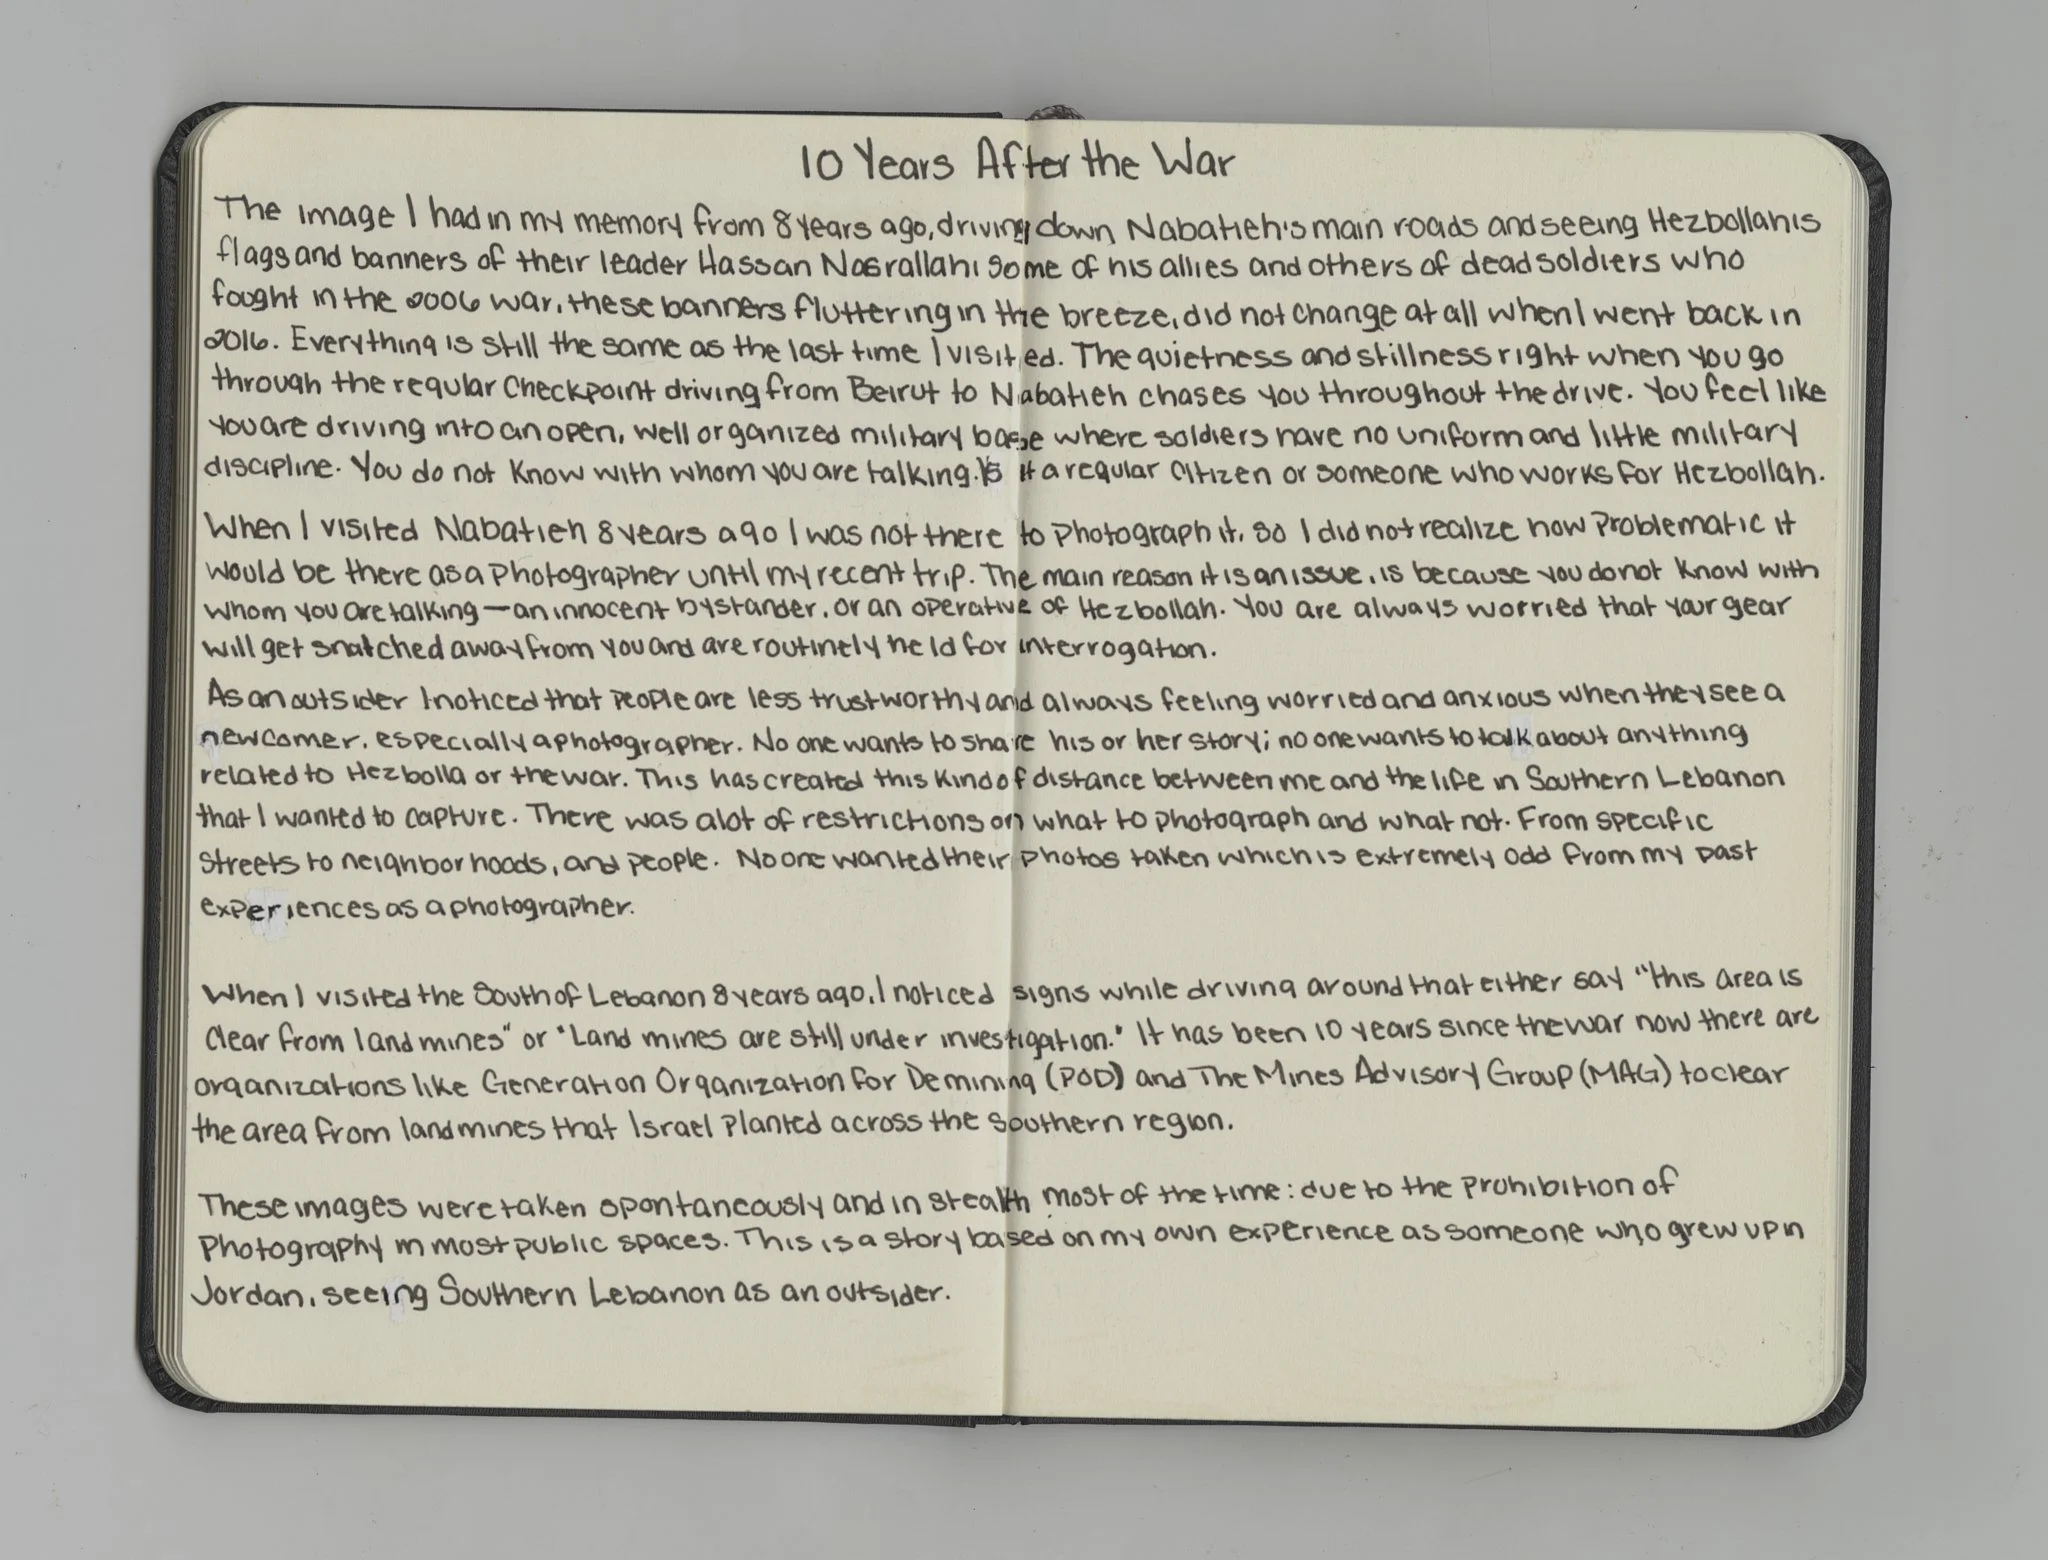 10 Years After the War
The image I had in my memory from 8 years ago, driving down Nabatieh's main roads and seeing Hezbollah's
flags and banners of their leader Hassan Nasrallah, some of his allies and others of dead soldiers who
fought in the 2006 war, these banners fluttering in the breeze, did not change at all when I went back in
2016. Everything is still the same as the last time I visited. The quietness and stillness right when you go
through the regular checkpoint driving from Beirut to Nabatieh chases you throughout the drive. You feel like
you are driving into an open, well organized military base where soldiers have no uniform and little military
discipline. You do not know with whom you are talking. Is it a regular citizen or someone who works for Hezbollah.
When I visited Nabatieh 8 years ago I was not there to photograph it, so I did not realize how problematic it
would be there as a photographer until my recent trip. The main reason it is an issue, is because you do not know with
whom you are talking — an innocent bystander, or an operative of Hezbollah. You are always worried that your gear
will get snatched away from you and are routinely held for interrogation.
As an outsider I noticed that people are less trustworthy and always feeling worried and anxious when they see a
newcomer, especially a photographer. No one wants to share his or her story; no one wants to talk about anything
related to Hezbolla or the war. This has created this kind of distance between me and the life in Southern Lebanon
that I wanted to capture. There was alot of restrictions on what to photograph and what not. From specific
streets to neighborhoods, and people. No one wanted their photos taken which is extremely odd from my past
experiences as a photographer.
When I visited the South of Lebanon 8 years ago, I noticed signs while driving around that either say "this area is
clear from landmines" or "Land mines are still under investigation." It has been 10 years since the war now there are
organizations like Generation Organization for Demining (POD) and The Mines Advisory Group (MAG) to clear
the area from landmines that Israel planted across the southern region.
These images were taken spontaneously and in stealth most of the time: due to the prohibition of
photography in most public spaces. This is a story based on my own experience as someone who grew up in
Jordan, seeing Southern Lebanon as an outsider.